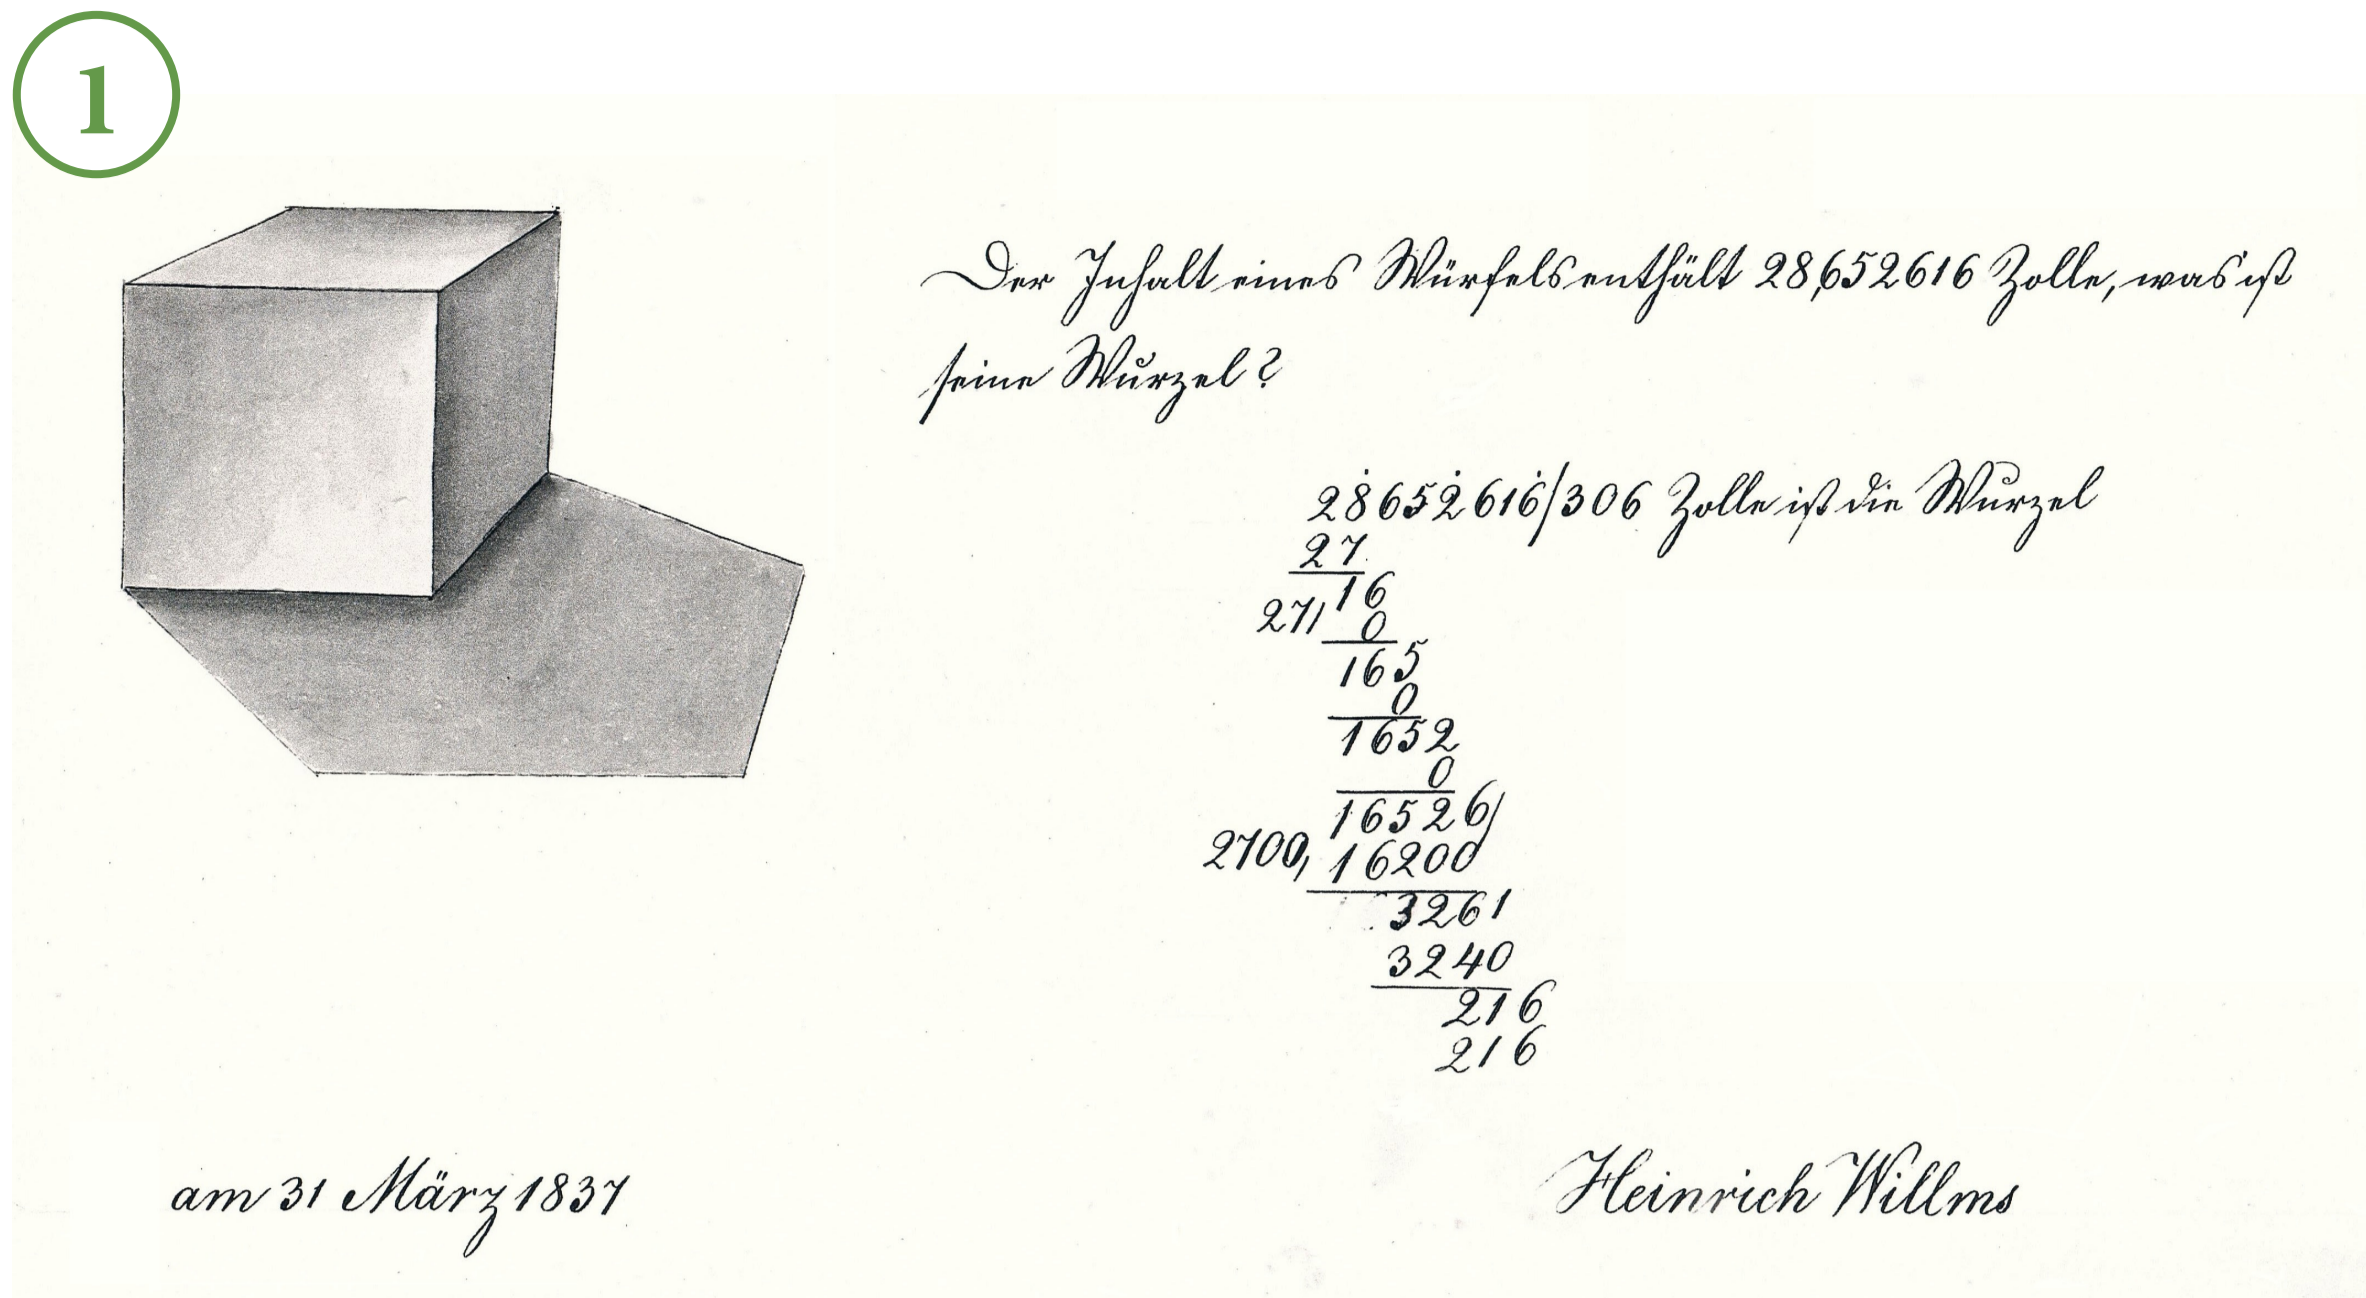 1
Der Inhalt eines Würfels enthält 28,652616 Zolle, was ist
seine Wurzel?
28652616/306 Zolle ist die Wurzel
27
16
27/ 0
165
0
1652
0
16526/
2700, 16200
3261
3240
216
216
am 31 März 1837
Heinrich Willms